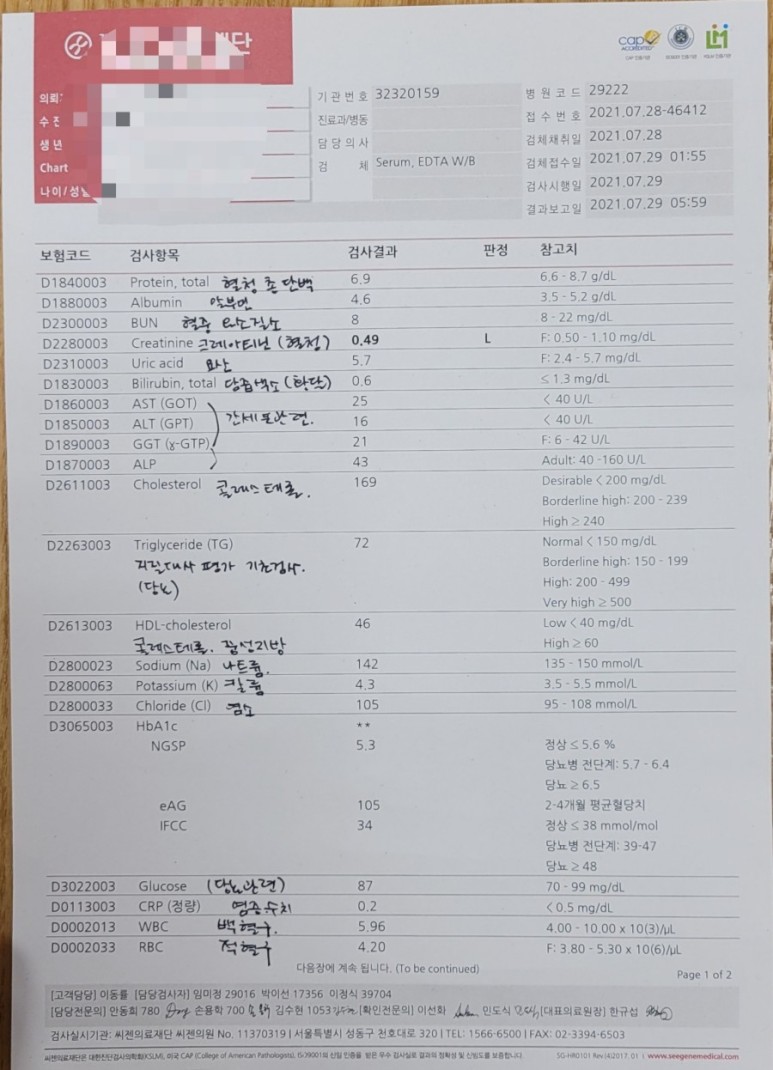 단
의뢰
수 진
생 년
Chart
나이/성별
기 관 번 호 32320159
진료과/병동
담 당 의 사
검 체 Serum, EDTA W/B
병 원 코 드 29222
접 수 번 호 2021.07.28-46412
검체채취일 2021.07.28
검체접수일 2021.07.29 01:55
검사시행일 2021.07.29
결과보고일 2021.07.29 05:59
보험코드 검사항목 검사결과 판정 참고치
D1840003 Protein, total 혈청 총 단백 6.9 6.6 - 8.7 g/dL
D1880003 Albumin 알부민 4.6 3.5 - 5.2 g/dL
D2300003 BUN 혈중 요소질소 8 8 - 22 mg/dL
D2280003 Creatinine 크레아티닌 (혈청) 0.49 L F: 0.50 - 1.10 mg/dL
D2310003 Uric acid 요산 5.7 F: 2.4 - 5.7 mg/dL
D1830003 Bilirubin, total 담즙색소 (황달) 0.6 ≤ 1.3 mg/dL
D1860003 AST (GOT) 25 < 40 U/L
D1850003 ALT (GPT) 간세포관련. 16 < 40 U/L
D1890003 GGT (γ-GTP) 21 F: 6 - 42 U/L
D1870003 ALP 43 Adult: 40 -160 U/L
D2611003 Cholesterol 콜레스테롤. 169 Desirable < 200 mg/dL
Borderline high: 200 - 239
High ≥ 240
D2263003 Triglyceride (TG) 72 Normal < 150 mg/dL
지질대사 평가 기초검사. Borderline high: 150 - 199
(당뇨) High: 200 - 499
Very high ≥ 500
D2613003 HDL-cholesterol 46 Low < 40 mg/dL
콜레스테롤. 중성지방 High ≥ 60
D2800023 Sodium (Na) 나트륨. 142 135 - 150 mmol/L
D2800063 Potassium (K) 칼륨 4.3 3.5 - 5.5 mmol/L
D2800033 Chloride (Cl) 염소 105 95 - 108 mmol/L
D3065003 HbA1c **
NGSP 5.3 정상 ≤ 5.6 %
당뇨병 전단계: 5.7 - 6.4
당뇨 ≥ 6.5
eAG 105 2-4개월 평균혈당치
IFCC 34 정상 ≤ 38 mmol/mol
당뇨병 전단계: 39-47
당뇨 ≥ 48
D3022003 Glucose (당뇨관련) 87 70 - 99 mg/dL
D0113003 CRP (정량) 염증수치 0.2 < 0.5 mg/dL
D0002013 WBC 백혈구. 5.96 4.00 - 10.00 x 10(3)/μL
D0002033 RBC 적혈구 4.20 F: 3.80 - 5.30 x 10(6)/μL
다음장에 계속 됩니다. (To be continued)
Page 1 of 2
[고객담당] 이동률 [담당검사자] 임미정 29016 박이선 17356 이정식 39704
[담당전문의] 안동희 780 손용학 700 김수현 1053 [확인전문의] 이선화 민도식 [대표의료원장] 한규섭
검사실시기관: 씨젠의료재단 씨젠의원 No. 11370319 | 서울특별시 성동구 천호대로 320 | TEL: 1566-6500 | FAX: 02-3394-6503
씨젠의료재단은 대한진단검사의학회(KSLM), 미국 CAP (College of American Pathologists), ISO9001의 신임 인증을 받은 우수 검사실로 결과의 정확성 및 신빙도를 보증합니다. SG-HR0101 Rev.(4)2017. 01 | www.seegenemedical.com